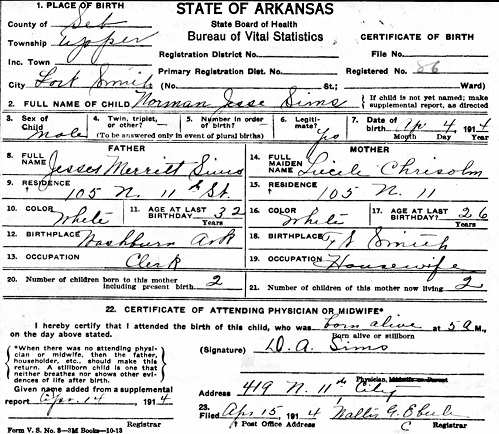 1. PLACE OF BIRTH
STATE OF ARKANSAS
County of Seb
State Board of Health
Township Upper
Bureau of Vital Statistics
CERTIFICATE OF BIRTH
Inc. Town
Registration District No.
File No.
City Fort Smith
Primary Registration Dist. No.
Registered No. 86
(No. St.; Ward)
2. FULL NAME OF CHILD Norman Jesse Sims
{ If child is not yet named; make supplemental report, as directed
3. Sex of Child Male
4. Twin, triplet, or other?
5. Number in order of birth?
(To be answered only in event of plural births)
6. Legitimate? Yes
7. Date of birth Ap 4 1914
Month Day Year
FATHER
MOTHER
8. FULL NAME Jesses Merritt Sims
14. FULL MAIDEN NAME Lucile Chrisolm
9. RESIDENCE 105 N. 11th St.
15. RESIDENCE 105 N. 11
10. COLOR White
11. AGE AT LAST BIRTHDAY 32 Years
16. COLOR White
17. AGE AT LAST BIRTHDAY? 26 Years
12. BIRTHPLACE Washburn Ark
18. BIRTHPLACE Ft Smith
13. OCCUPATION Clerk
19. OCCUPATION Housewife
20. Number of children born to this mother including present birth 2
21. Number of children of this mother now living 2
22. CERTIFICATE OF ATTENDING PHYSICIAN OR MIDWIFE*
I hereby certify that I attended the birth of this child, who was born alive at 5 A M.,
on the day above stated.
Born alive or stillborn
*When there was no attending physician or midwife, then the father, householder, etc., should make this return. A stillborn child is one that neither breathes nor shows other evidences of life after birth.
(Signature) D. A. Sims
Physician, Midwife or Parent
Given name added from a supplemental
report Apr 14 1914
Address 419 N. 11th City
23. Filed Apr 15, 1914
Post Office Address
Registrar
Registrar
Form V. S. No. 3—3M Books—10-13